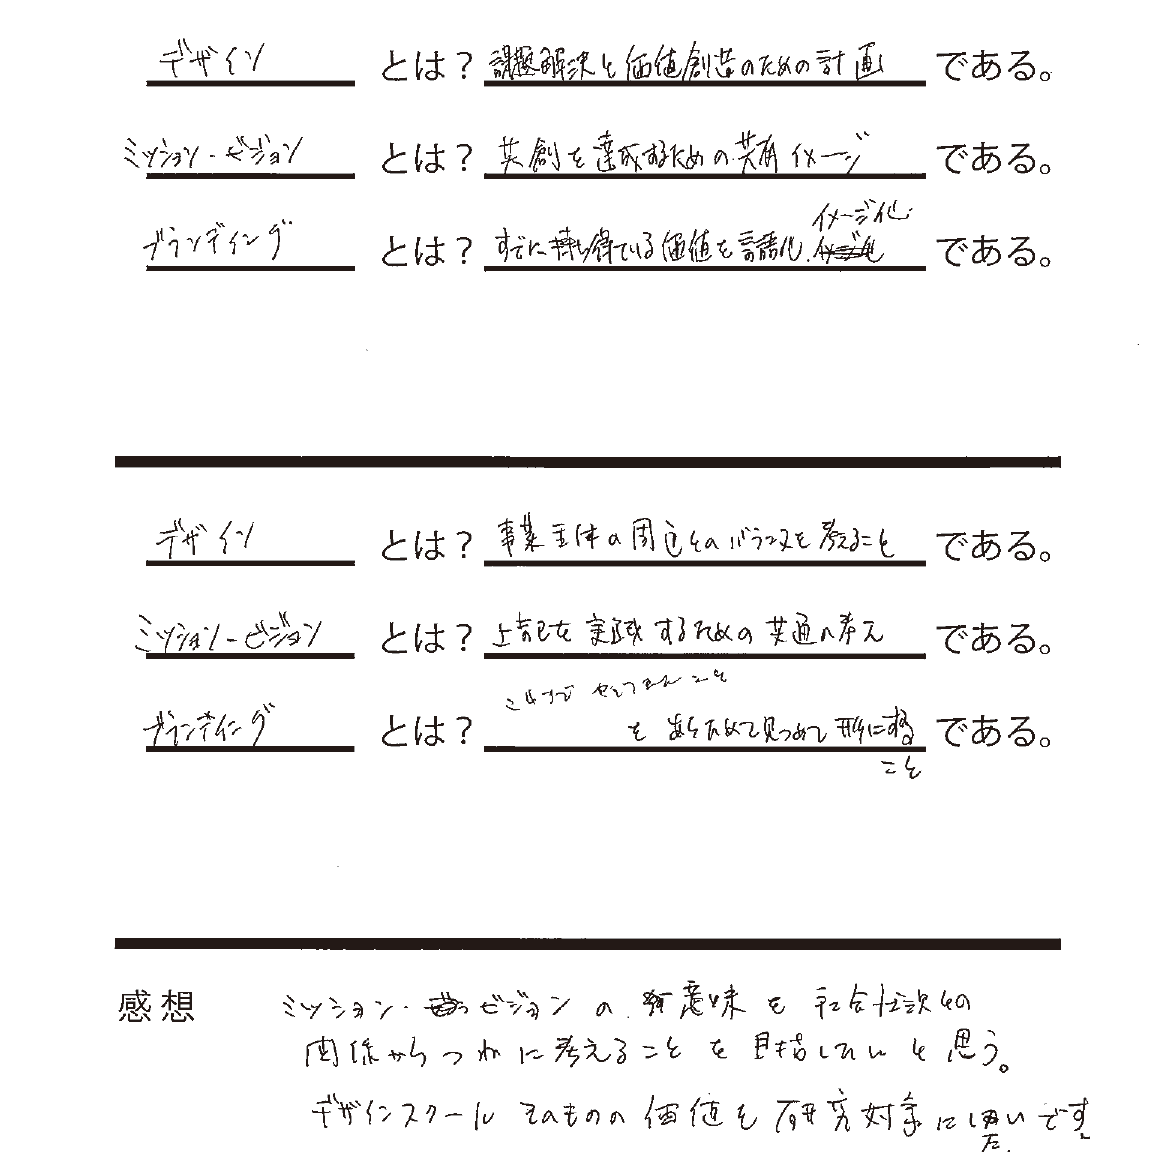 デザイン とは？ 課題解決と価値創造のための計画 である。
ミッション・ビジョン とは？ 共創を達成するための共有イメージ である。
イメージ化
ブランディング とは？ すでに持ち得ている価値を言語化. である。
デザイン とは？ 事業主体の周辺とのバランスを考えること である。
ミッション・ビジョン とは？ 上記を実践するための共通の考え である。
これまで やってきたこと
ブランディング とは？ を あらためて見つめて形にする である。
こと
感想 ミッション・ビジョン の 意味 を 社会 との
関係から つねに考えること を 目指したい と 思う。
デザインスクール そのものの 価値を 研究対象に したい です。